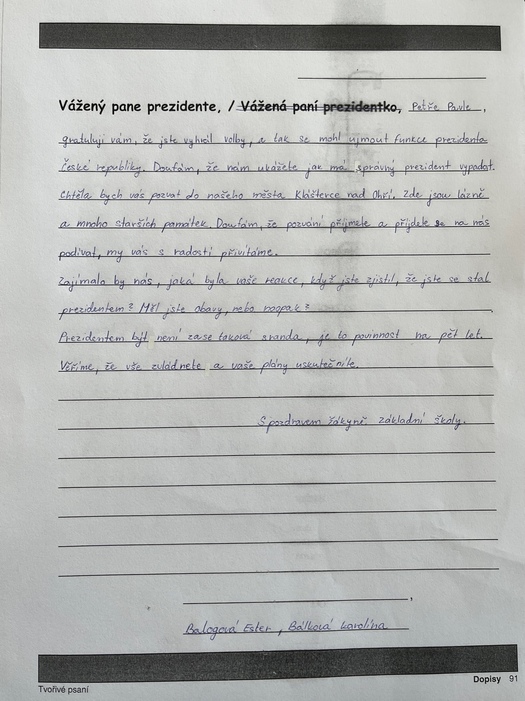 Vážený pane prezidente, / Vážená paní prezidentko, Petře Pavle,
gratuluji vám, že jste vyhrál volby, a tak se mohl ujmout funkce prezidenta
České republiky. Doufám, že nám ukážete jak má správný prezident vypadat.
Chtěla bych vás pozvat do našeho města Klášterce nad Ohří. Zde jsou lázně
a mnoho starších památek. Doufám, že pozvání přijmete a přijdete se na nás
podívat, my vás s radostí přivítáme.
Zajímalo by nás, jaká byla vaše reakce, když jste zjistil, že jste se stal
prezidentem? Měl jste obavy, nebo naopak?
Prezidentem být není zase taková sranda, je to povinnost na pět let.
Věříme, že vše zvládnete a vaše plány uskutečníte.
S pozdravem žákyně základní školy.
,
Balogová Ester, Bálková Karolína
Dopisy 91
Tvořivé psaní